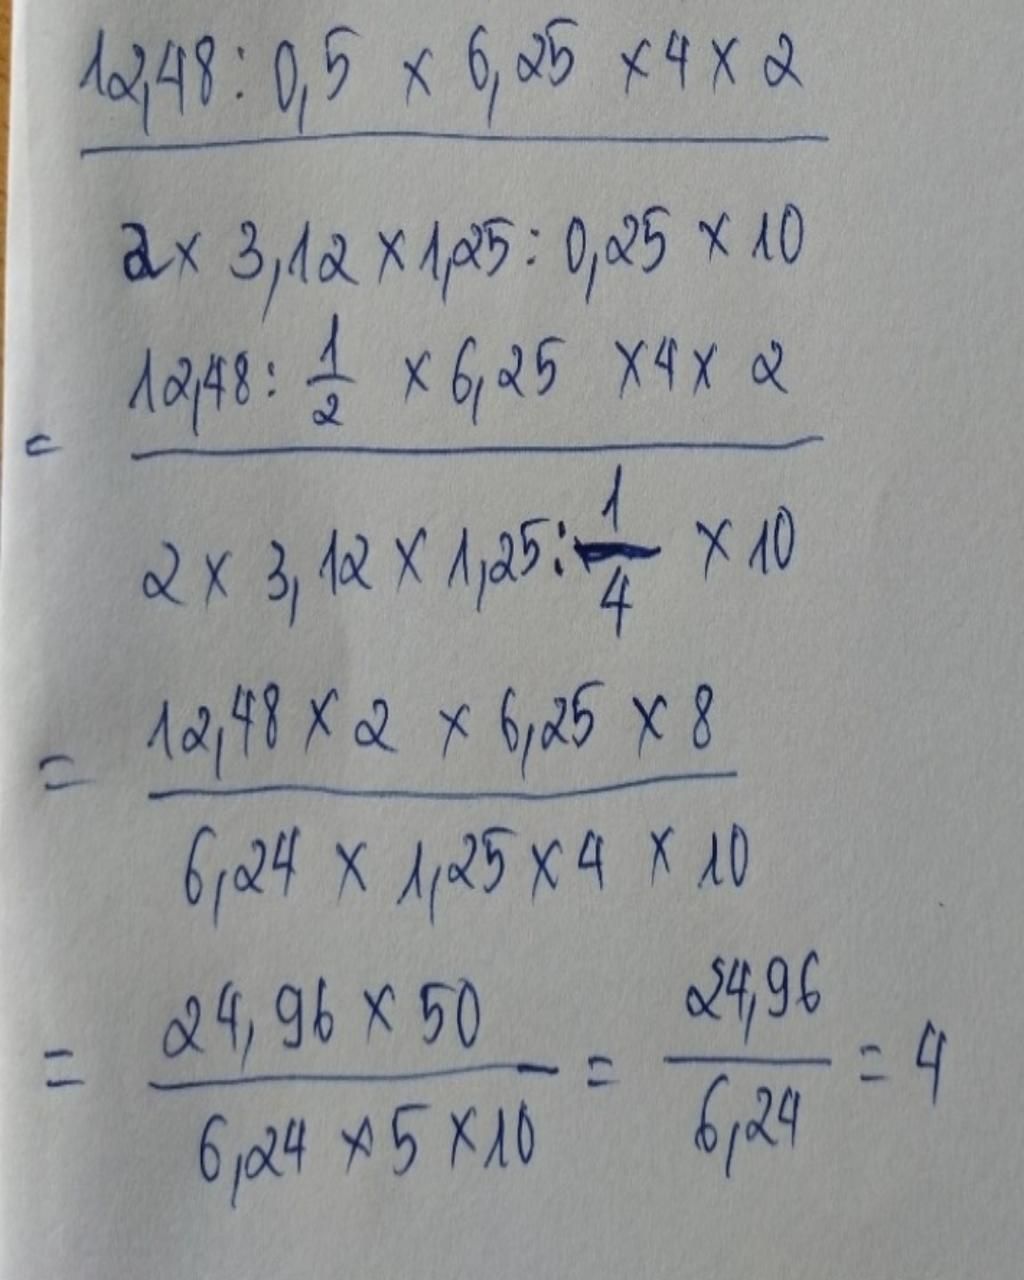 12,48 : 0,5 × 6,25 × 4 × 2
2 × 3,12 × 1,25 : 0,25 × 10
= 12,48 : 1/2 × 6,25 × 4 × 2
2 × 3,12 × 1,25 : 1/4 × 10
= 12,48 × 2 × 6,25 × 8
6,24 × 1,25 × 4 × 10
= 24,96 × 50 / 6,24 × 5 × 10 = 24,96 / 6,24 = 4